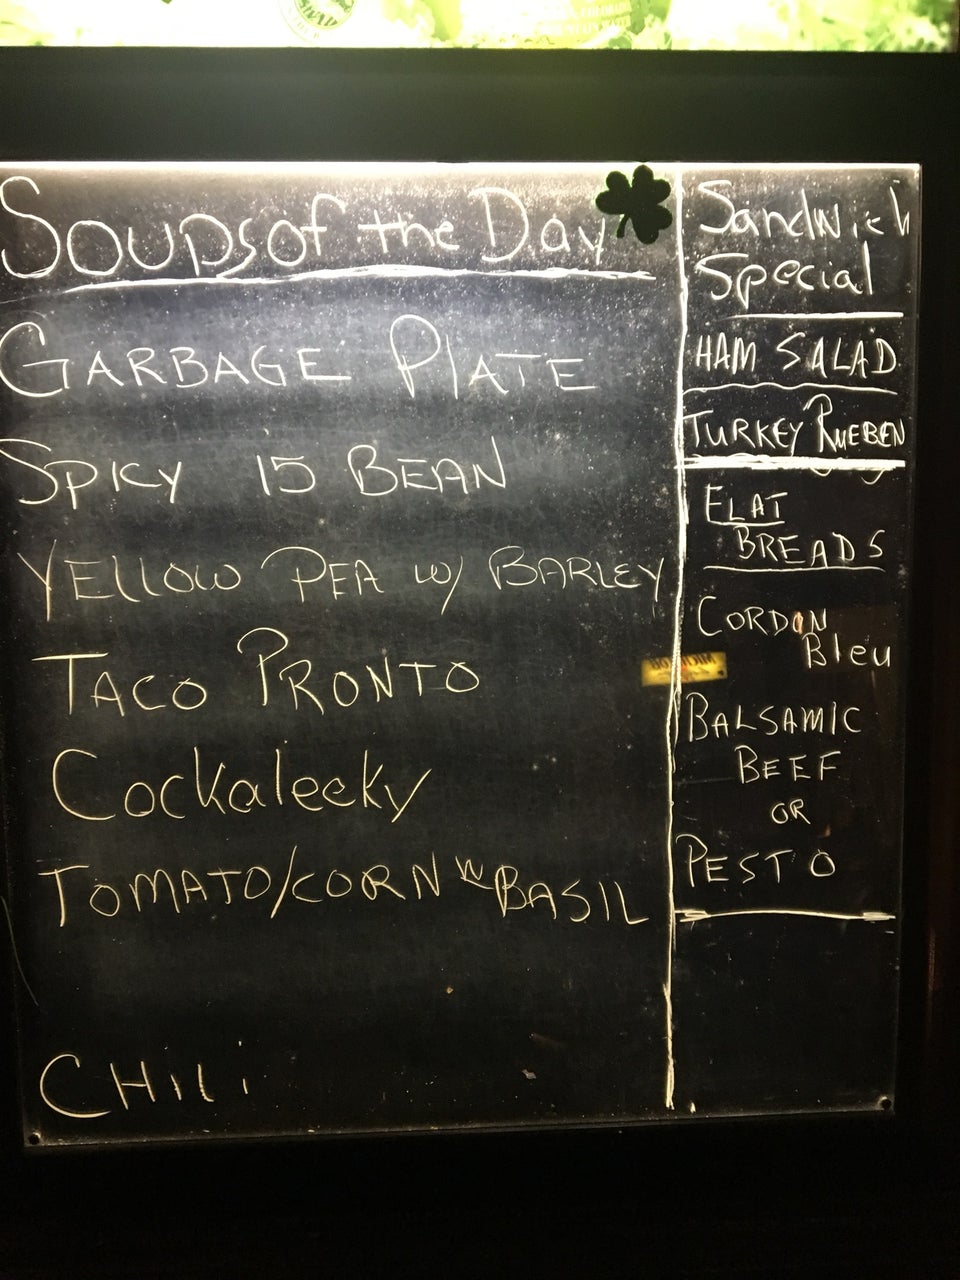 Soups of the Day
GARBAGE PLATE
SPICY 15 BEAN
YELLOW PEA W/ BARLEY
TACO PRONTO
Cockaleeky
TOMATO/CORN W BASIL
CHILI
Sandwich
Special
HAM SALAD
TURKEY RUEBEN
FLAT
BREADS
CORDON
Bleu
BALSAMIC
BEEF
OR
PESTO